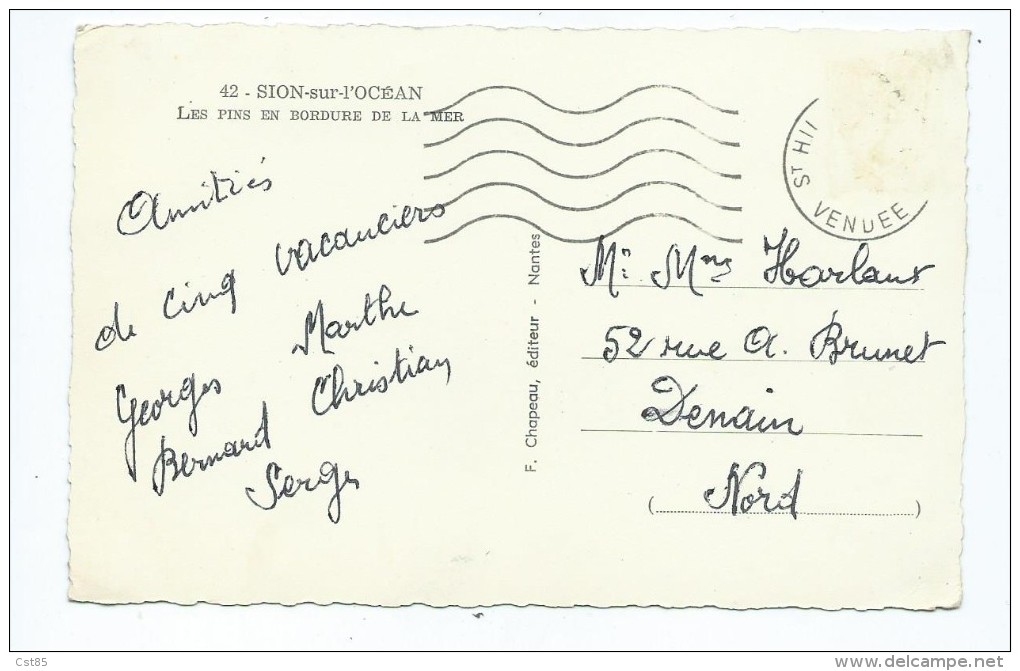 42 - SION-sur-l'OCÉAN
LES PINS EN BORDURE DE LA MER
Amitiés
de cinq vacanciers
Georges Marthe
Bernard Christian
Serge
F. Chapeau, éditeur - Nantes
ST HIL
VENDEE
Mr Mme Harlaux
52 rue A. Brunet
Denain
(Nord)
Cst85
www.delcampe.net